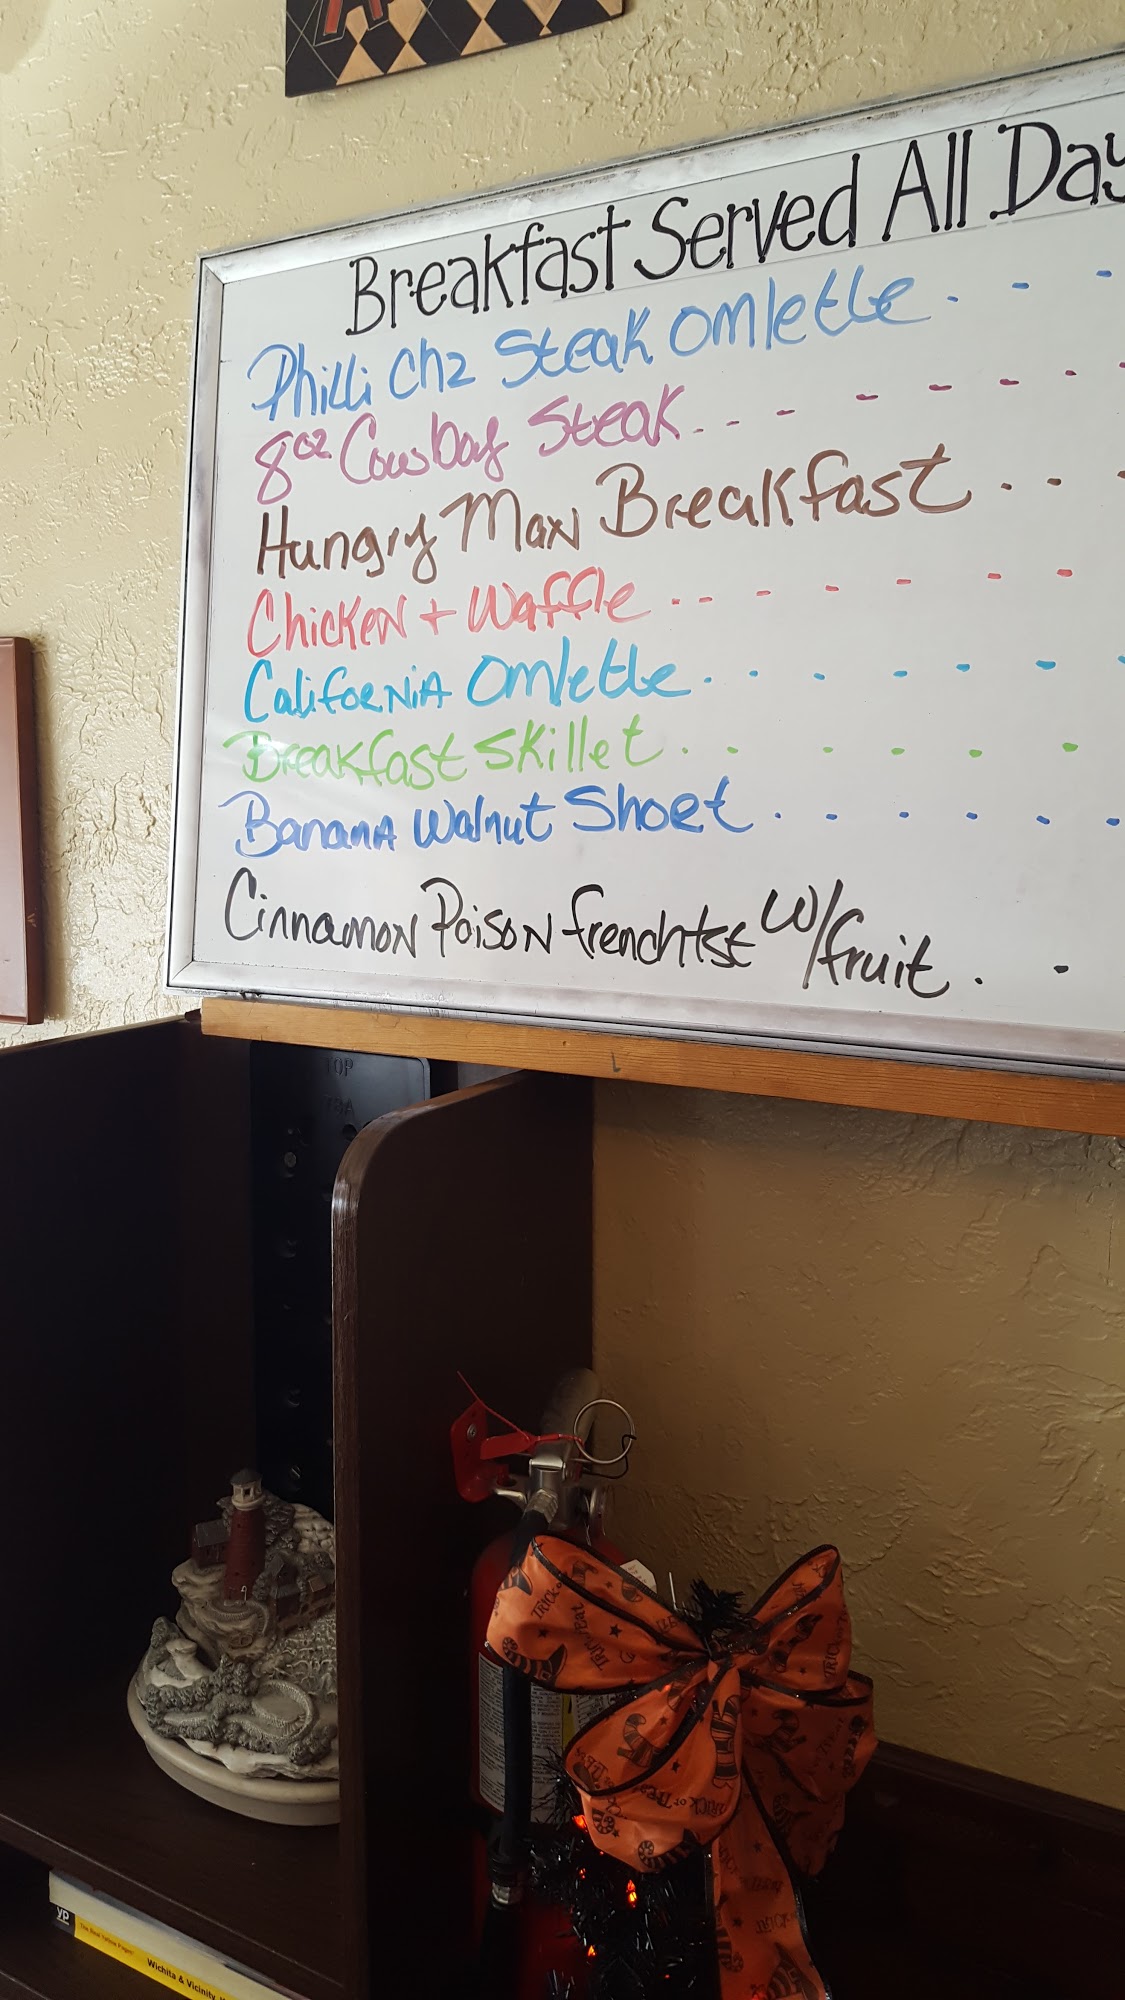 Breakfast Served All Day
Philli Chz Steak Omlette . . .
8oz Cowboy Steak . . - - - - -
Hungry Man Breakfast . . .
Chicken + Waffle - - - - - - -
California Omlette . . . . . . .
Breakfast Skillet . . . . . .
Banana Walnut Short . . . . . .
Cinnamon Poison frenchtst w/fruit . .
TOP
TRICK or TREAT
yp
The Real Yellow Pages
Wichita & Vicinity